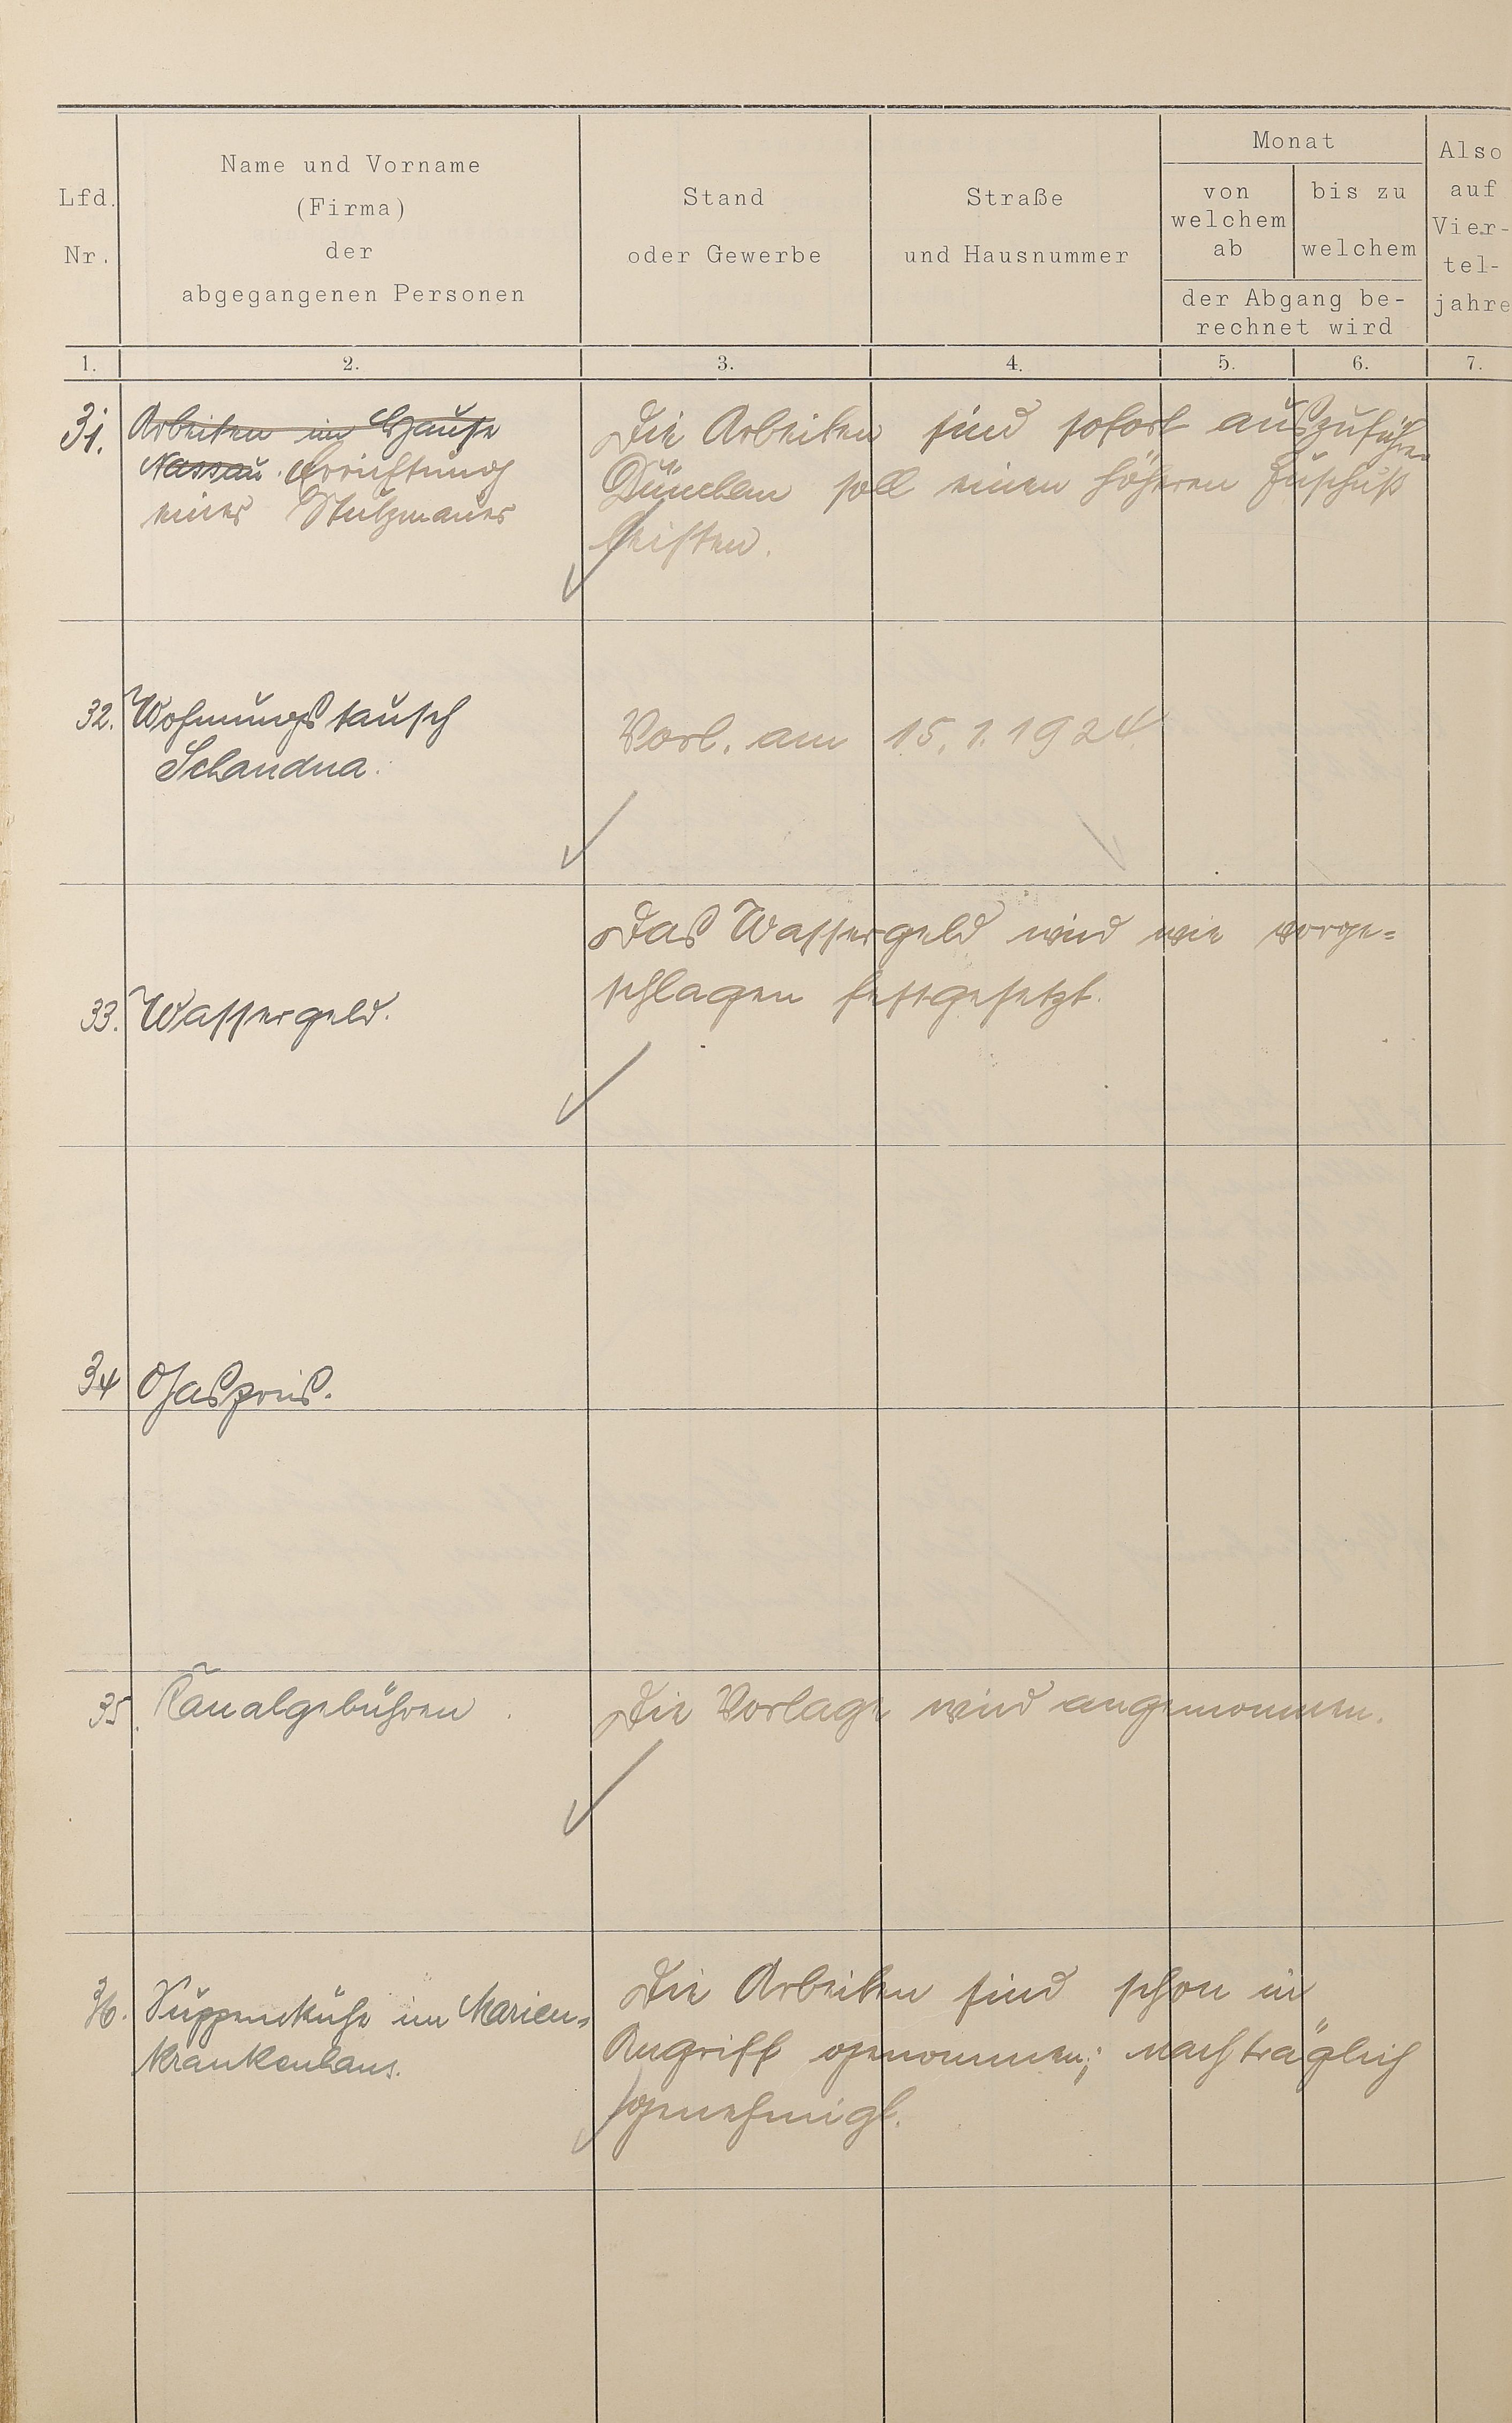 Lfd. Nr.
Name und Vorname
(Firma)
der
abgegangenen Personen
Stand
oder Gewerbe
Straße
und Hausnummer
Monat
von
welchem
ab
bis zu
welchem
der Abgang be-
rechnet wird
Also
auf
Vier-
tel-
jahre
1. 2. 3. 4. 5. 6. 7.
31. Arbeiten im Hause
Nassau. Errichtung
einer Stützmauer
Die Arbeiten sind sofort auszuführen
soll einen höheren Zuschuß
leisten.
32. Wohnungstausch
Schandua.
Vorl. am 15.1.1924
33. Wassergeld.
Das Wassergeld wird wie vorge=
schlagen festgesetzt.
34 Gaspreis.
35. Kanalgebühren.
Die Vorlage wird angenommen.
36. Suppenküche im Marien=
krankenhaus.
Die Arbeiten sind schon in
Angriff genommen; nachträglich
genehmigt.